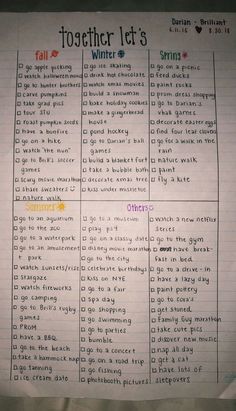 together let's
Fall
□ go apple picking
□ watch halloween movies
□ go to hunter brothers
□ carve pumpkins
□ take grad pics
□ tour SFU
□ roast pumpkin seeds
□ have a bonfire
□ go on a hike
□ watch "the nun"
□ go to Brill's soccer
games
□ scary movie marathon
□ share sweaters
□ nature walk
Winter
□ go ice skating
□ drink hot chocolate
□ watch xmas movies
□ build a snowman
□ bake holiday cookies
□ make a gingerbread
house
□ pond hockey
□ go to Darian's ball
games
□ build a blanket fort
□ take a bubble bath
□ decorate xmas tree
□ kiss under mistletoe
Spring
□ go on a picnic
□ feed ducks
□ paint rocks
□ prom dress shopping
□ go to Darian's
games
□ decorate easter eggs
□ find four leaf clovers
□ go for a walk in the
rain
□ nature walk
□ paint
□ fly a kite
Summer
□ go to an aquarium
□ go to the zoo
□ go to a waterpark
□ go to an amusement
park
□ watch sunsets/rise
□ stargaze
□ watch fireworks
□ go camping
□ go to Brill's rugby
games
□ PROM
□ have a BBQ
□ go to the beach
□ take a hammock nap
□ go tanning
□ ice cream date
Others
□ go to a museum
□ go on a classy date
□ disney movie marathon
□ go to the city
□ celebrate birthdays
□ kiss on NYE
□ go to a fair
□ spa day
□ go shopping
□ go swimming
□ go to parties
□ bumble
□ go to a concert
□ go on a road trip
□ go fishing
□ photobooth pictures
□ watch a new netflix
series
□ go to the gym
□ have break-
fast in bed
□ go to a drive-in
□ have a lazy day
□ paint pottery
□ go to cora's
□ get stoned
□ family guy marathon
□ take cute pics
□ discover new music
□ nap all day
□ get a cat
□ have lots of
sleepovers